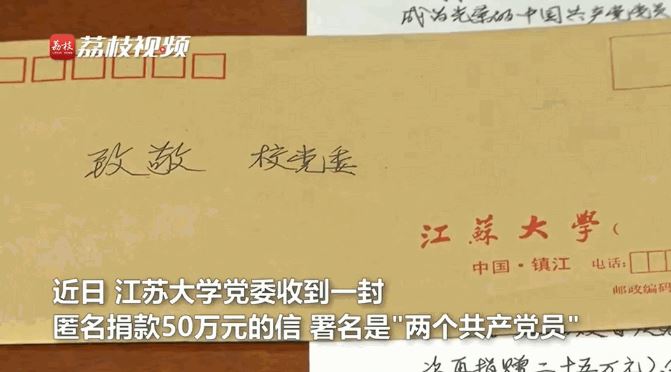 荔枝 荔枝视频
成为光荣的中国共产党党员
致敬 校党委
江蘇大學（
中国·镇江 电话:
邮政编码
近日 江苏大学党委收到一封
匿名捐款50万元的信 署名是"两个共产党员"
次再捐赠二十五万元（